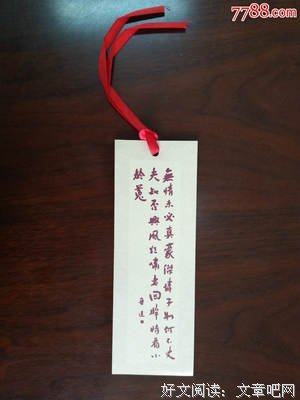 7788.com
無情未必真豪傑憐子如何不丈
夫知否興風狂嘯者回眸時看小
於菟
魯迅
好文阅读：文章吧网